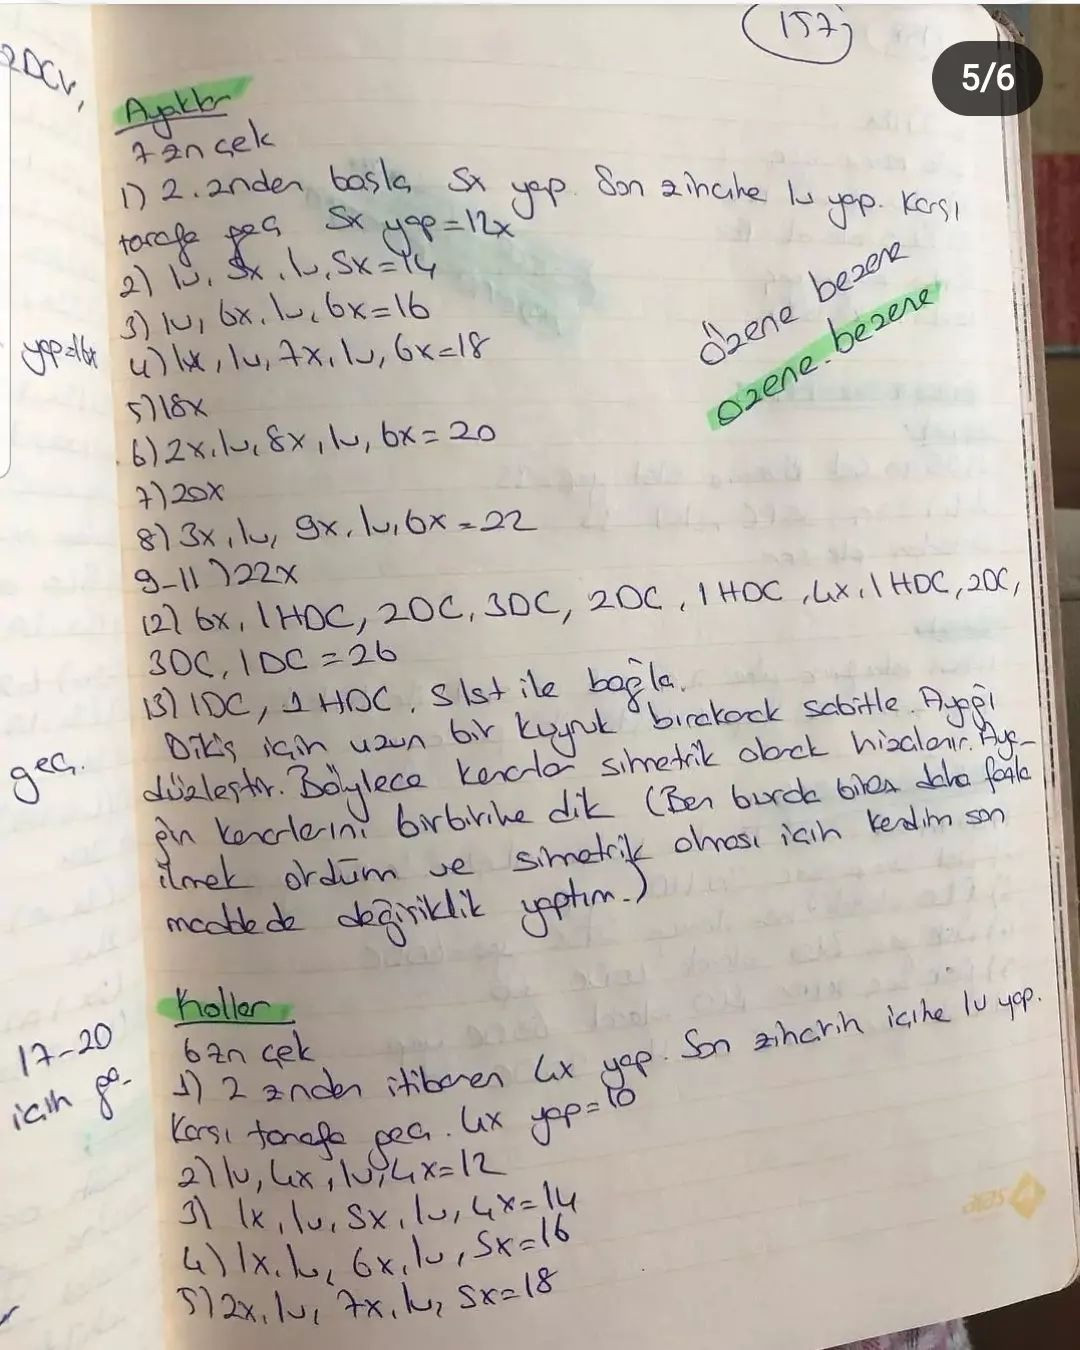 157
5/6
2DC,
Ayaklar
7 zn çek
1) 2. znden başla 5x yap. Son zincine 1v yap. Karşı
tarafa geç 5x yap=12x
2) 1v, 5x, 1v, 5x=14
3) 1v, 6x, 1v, 6x=16
özene bezene
yap=16x
4) 1x, 1v, 7x, 1v, 6x=18
ozene.bezene
5) 18x
6) 2x, 1v, 8x, 1v, 6x=20
7) 20x
8) 3x, 1v, 9x, 1v, 6x=22
9-11) 22x
12) 6x, 1HDC, 2DC, 3DC, 2DC, 1HDC, 4x, 1HDC, 2DC,
3DC, 1DC=26
13) 1DC, 1HDC, slst ile bağla.
Dikiş için uzun bir kuyruk bırakarak sabitle. Ayağı
geç.
düzleştir. Böylece kenarlar simetrik olarak hizalanır. Aya-
ğın kenarlarını birbirine dik (Ben burda biraz daha fazla
ilmek ördüm ve simetrik olması için kendim son
maddede değişiklik yaptım.)
Kollar
17-20
6 zn çek
için
1) 2 znden itibaren 4x yap. Son zincirin içine 1v yap.
Karşı tarafa geç. 4x yap=10
2) 1v, 4x, 1v, 4x=12
3) 1x, 1v, 5x, 1v, 4x=14
4) 1x, 1v, 6x, 1v, 5x=16
5) 2x, 1v, 7x, 1v, 5x=18